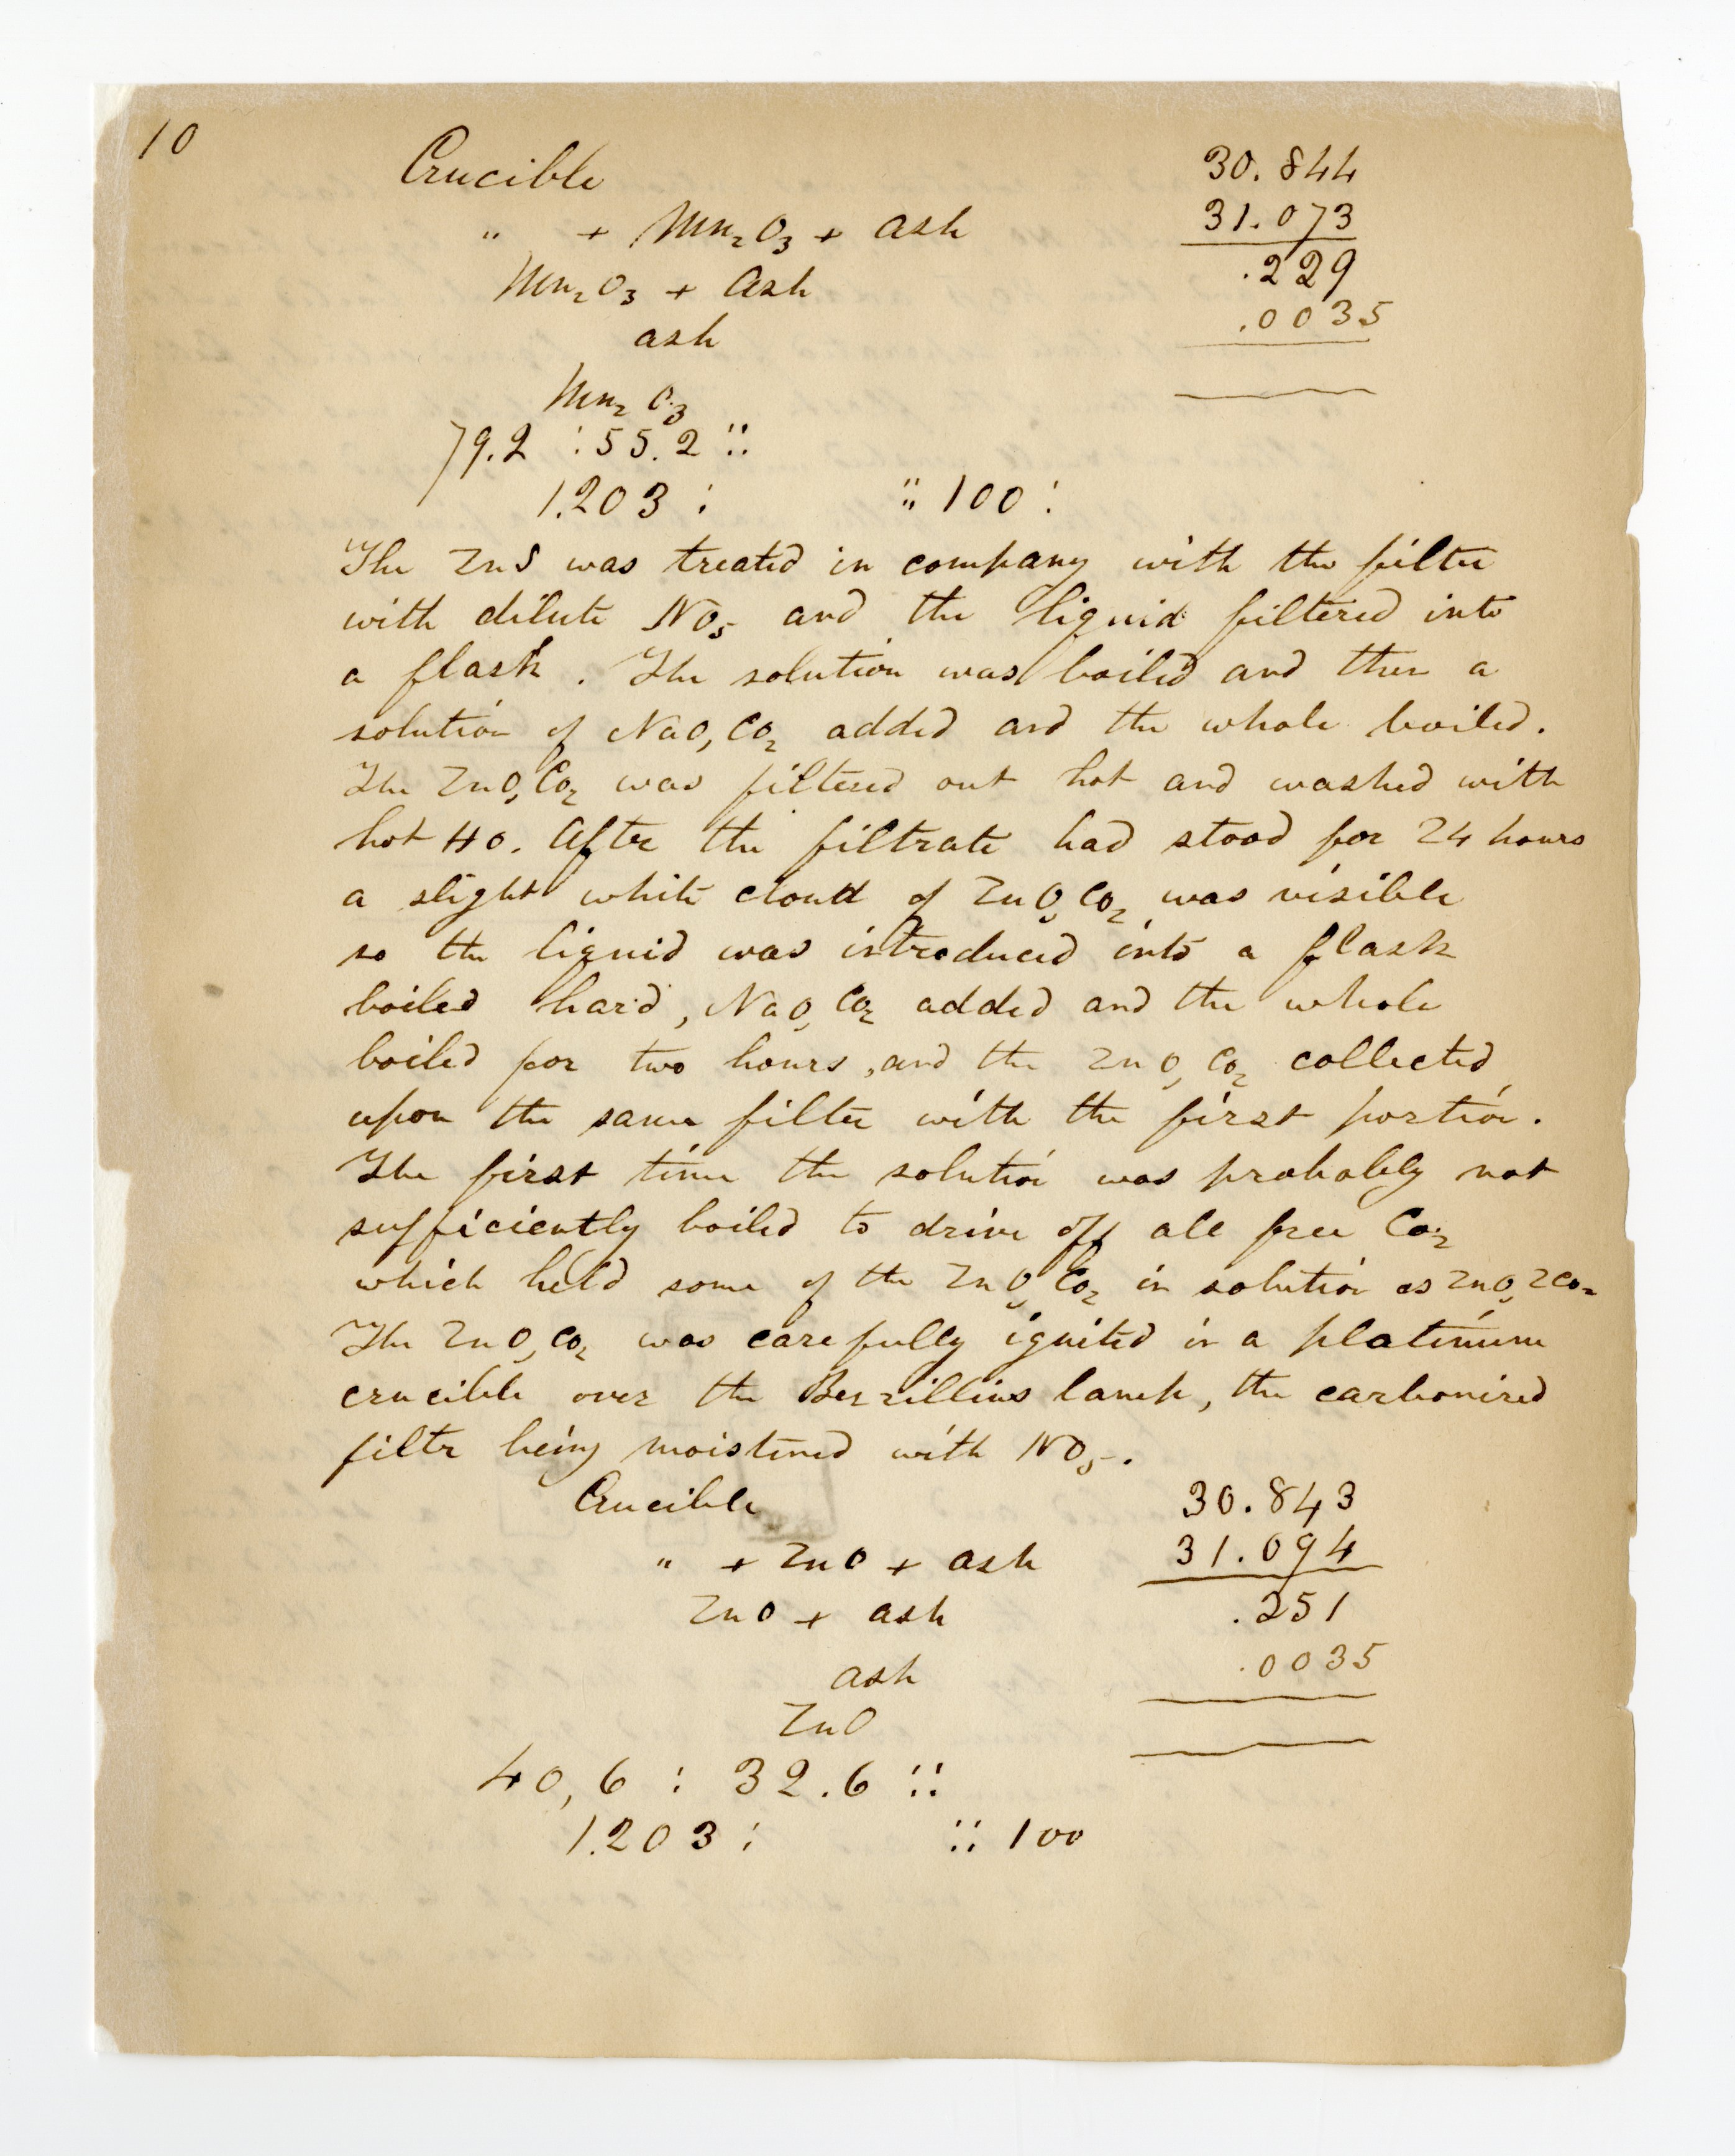 10
Crucible 30.844
" + Mn₂O₃ + ash 31.073
Mn₂O₃ + Ash .229
ash .0035
Mn₂O₃
79.2 : 55.2 ::
1.203 : :: 100 :
The ZnS was treated in company with the filter
with dilute NO₅ and the liquid filtered into
a flask. The solution was boiled and then a
solution of NaO,CO₂ added and the whole boiled.
The ZnO,CO₂ was filtered out hot and washed with
hot HO. After the filtrate had stood for 24 hours
a slight white cloud of ZnO,CO₂ was visible
so the liquid was introduced into a flask
boiled hard, NaO,CO₂ added and the whole
boiled for two hours, and the ZnO,CO₂ collected
upon the same filter with the first portion.
The first time the solution was probably not
sufficiently boiled to drive off all free CO₂
which held some of the ZnO,CO₂ in solution as ZnO,2CO₂
The ZnO,CO₂ was carefully ignited in a platinum
crucible over the Berzillius lamp, the carbonized
filtr being moistened with NO₅.
Crucible 30.843
" + ZnO + ash 31.094
ZnO + ash .251
ash .0035
ZnO
40,6 : 32.6 ::
1.203 : :: 100